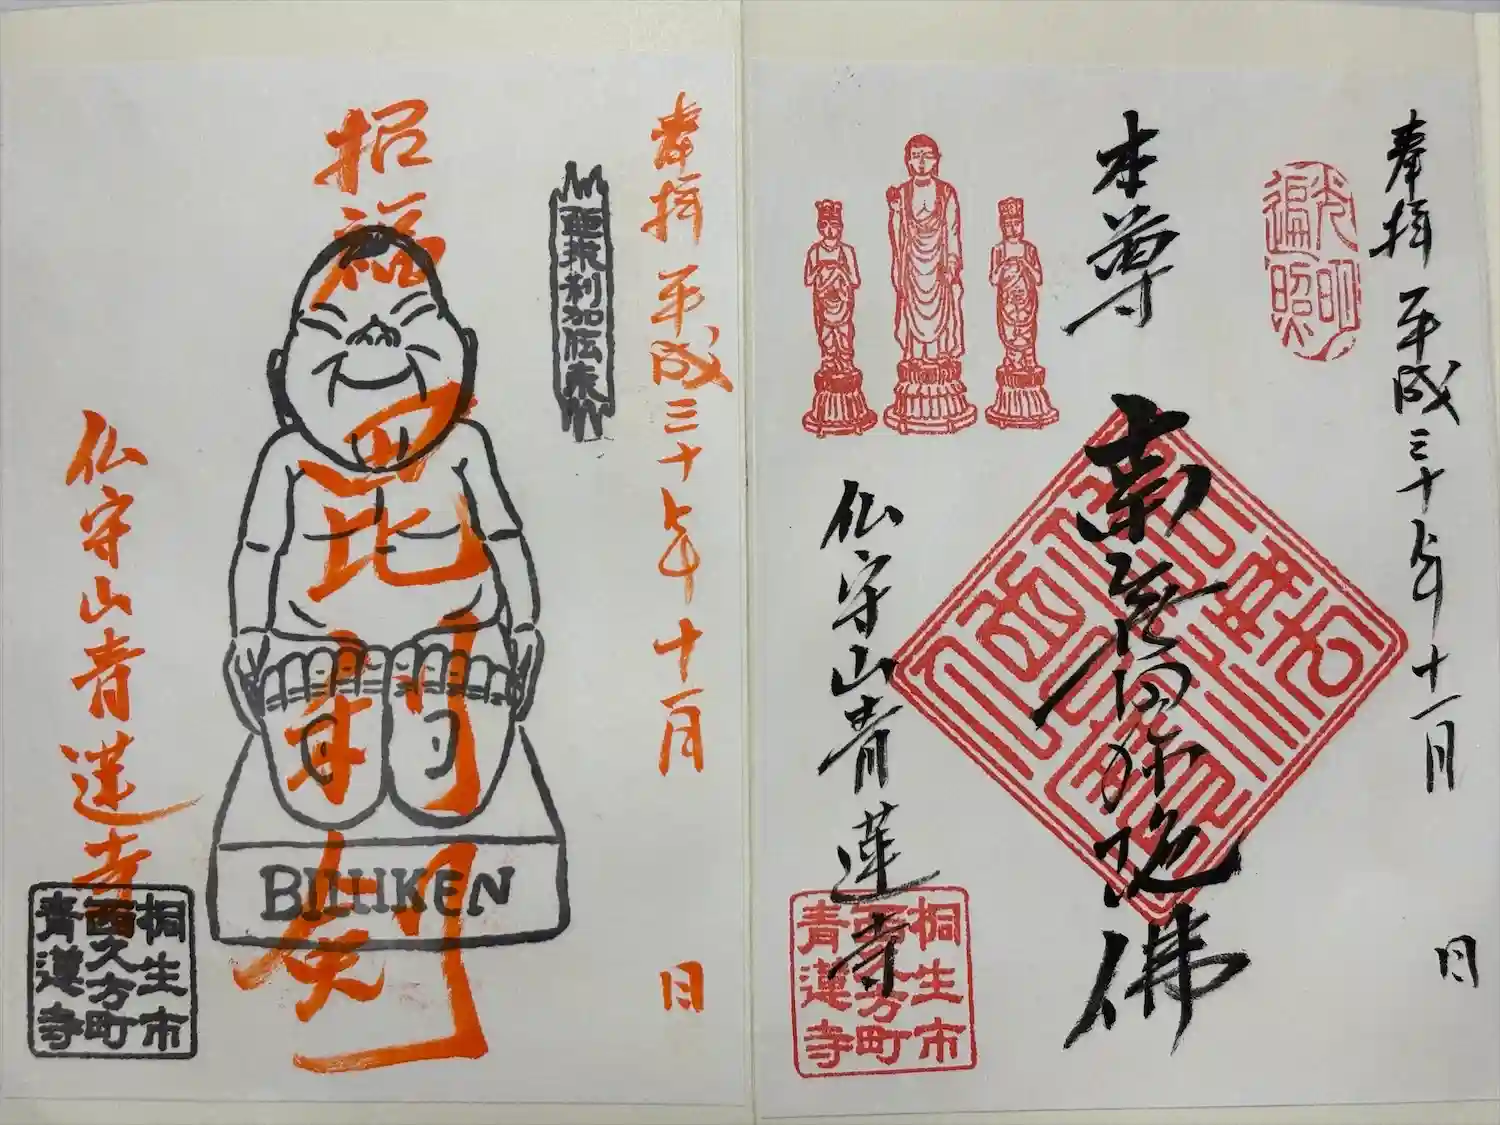 奉拝 平成三十年十一月 日
光明
遍照
本尊
南無阿弥陀佛
仏守山青蓮寺
桐生市
西久方町
青蓮寺
奉拝 平成三十年十一月 日
亜米利加伝来
招福毘利剣
BILLIKEN
仏守山青蓮寺
桐生市
西久方町
青蓮寺